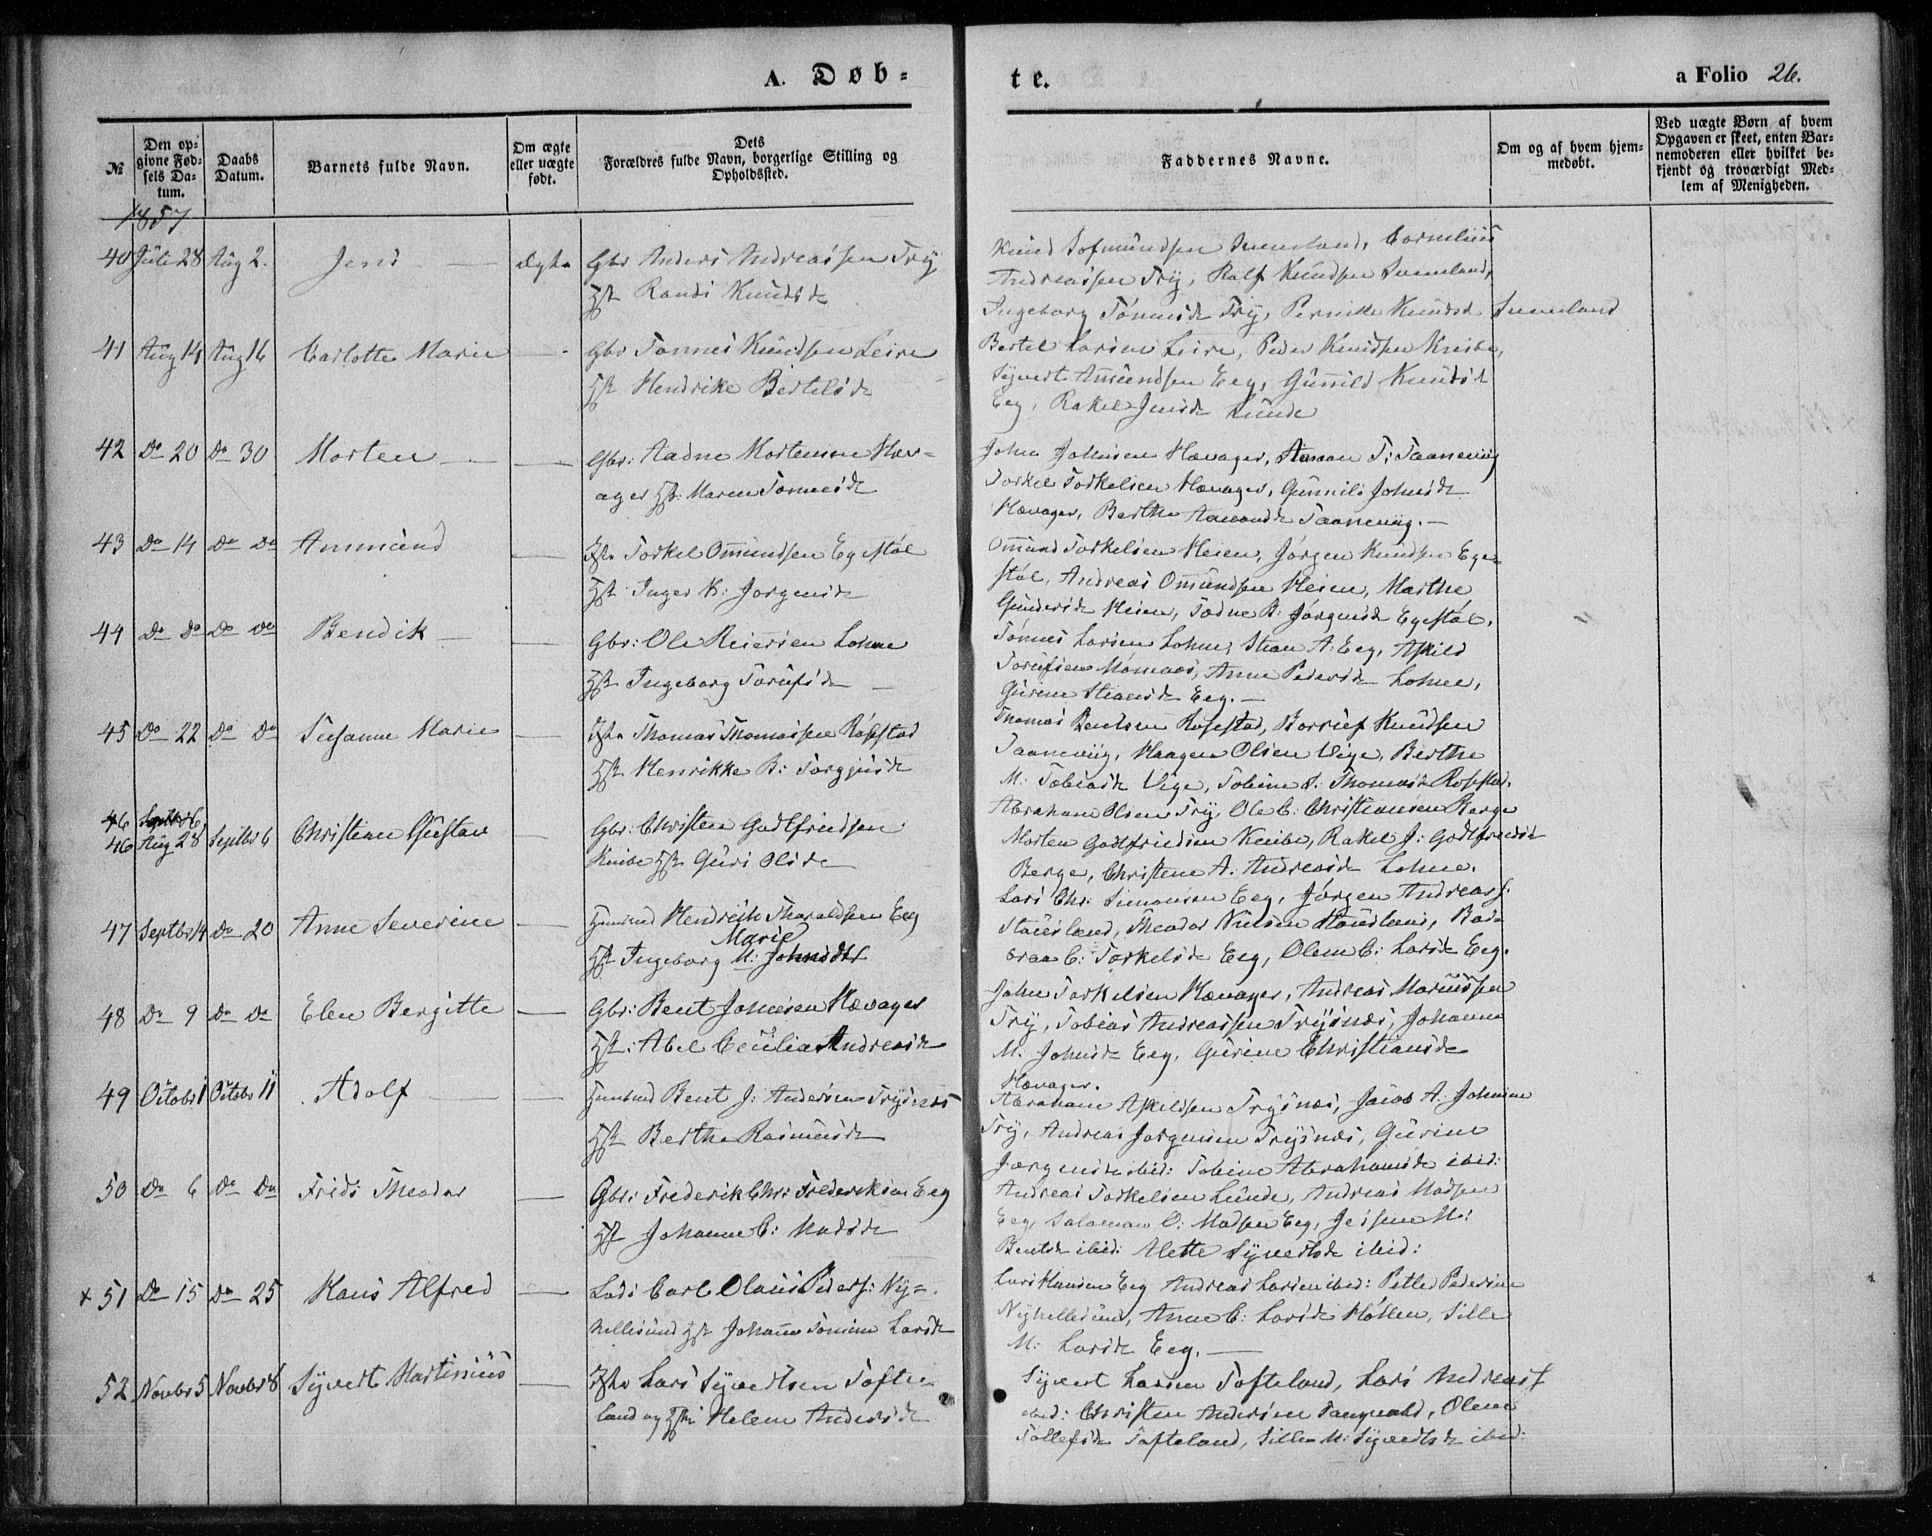 A. Døb-
te.
a Folio 26.
№
Den op-
givne Fød-
sels Da-
tum.
Daabs
Datum.
Barnets fulde Navn.
Om ægte
eller uægte
født.
Dets
Forældres fulde Navn, borgerlige Stilling og
Opholdssted.
Faddernes Navne.
Om og af hvem hjem-
medøbt.
Ved uægte Børn af hvem
Opgaven er skeet, enten Bar-
nemoderen eller hvilket be-
kjendt og troværdigt Med-
lem af Menigheden.
1857
40 Juli 28 Aug 2. Jens — Ægte Gbr Anders Andreassen Try
Hst Randi Knudsd
Knud Sofmundsen Suuneland, Cornelius
Andreassen Try, Rolf Knudsen Suuneland,
Ingeborg Tönnesd Try, Pernille Knudsd Suuneland
41 Aug 14 Aug 16 Carlotte Marie — Gbr Tønnes Knudsen Leire
Hst Hendrike Bertelsd
Bertel Larsen Leire, Peder Knudsen Knibe,
Syvert Amundsen Eeg, Gunild Knudsd
Eeg, Rakel Jensd Lunde
42 Do 20 Do 30 Morten — — Gbr: Aadne Mortensen Hæv-
ager Hst: Maren Tønnesd
John Johnsen Hævager, Aanon T: Taanevig
Torkel Torkelsen Hævager, Gunnild Johnsd
Hævager, Berthe Aanonsd Taanevig. —
43 Do 14 Do Do Ammund — Torkel Omundsen Egestøl
Hst: Inger K: Jørgensd
Omund Torkelsen Heien, Jørgen Knudsen Ege-
støl, Andreas Omundsen Heien, Marthe
Gundersd Heien, Tødne B: Jørgensd Egestøl.
44 Do Do Do Do Bendik — — Gbr: Ole Reiersen Lohne
Hst Ingeborg Torufsd —
Tønnes Larsen Lohne, Stian A: Eeg, Askild
Torufsen Mannaas, Anne Pedersd Lohne,
Gurine Stiansd Eeg. —
45 Do 22 Do Do Susanne Marie — Thomas Thomassen Rosstad
Hst Henrikke B: Torgjusd
Thomas Bentsen Rosstad, Borruf Knudsen
Taanevig, Haagen Olsen Vige, Berthe
M: Tobiasd Vige, Tobine S: Thomasd Rosstad.
46 Septbr 6
46 Aug 28 Septbr 6 Christian Gustav — Gbr: Christen Godtfriedsen
Knibe Hst Guri Olsd
Abraham Olsen Try, Ole C: Christiansen Berge
Morten Godtfriedsen Knibe, Rakel J: Godtfriedsd
Berge, Christene A: Andreasd Lohne.
47 Septbr 14 Do 20 Anne Severine — Huusmd Hendrich Tharaldsen Eeg
Marie
Hst Ingeborg M: Johnsdtr
Lars Chr: Simonsen Eeg, Jørgen Andreass:
Stausland, Theodor Nielsen Stausland, Bar-
braa C: Torkelsd Eeg, Olene C: Larsd Eeg.
48 Do 9 Do Do Elen Bergitte — Gbr: Bent Johnsen Hævager
Hst: Abel Cecilia Andreasd
John Torkelsen Hævager, Andreas Mariussen
Try, Tobias Andreassen Trysnes, Johanne
M. Johnsd Eeg, Gurine Christiansd
Hævager.
49 Octobr 1 Octobr 11 Adolf — — Huusmd Bent J: Andersen Trysnes
Hst Berthe Rasmusd
Abraham Askildsen Trysnes, Jacob A: Johnsen
Try, Andreas Jørgensen Trysnes, Gurine
Jørgensd ibid: Tobine Abrahamsd ibid:
50 Do 6 Do Do Frids Theodor — Gbr: Frederik Chr: Frederiksen Eeg
Hst Johanne C: Madsd
Andreas Torkelsen Lunde, Andreas Madsen
Eeg, Salomon O: Madsen Eeg, Jensine M:
Bentsd ibid: Alette Syvertsd ibid:
x 51 Do 15 Do 25 Hans Alfred — Lods Carl Olaus Peders: Ny-
hellesund Hst Johanne Tomine Larsd
Lars Hansen Eeg Andreas Larsen ibid: Petter Pedersen
Nyhellesund, Anne C: Larsd Høllen, Sille
M: Larsd Eeg. —
52 Novbr 5 Novbr 8 Syvert Martinius — Lars Syvertsen Tofte-
land og Hst Helene Andersd
Syvert Larsen Tofteland, Lars Andreass
ibid: Christen Andersen Tangvald, Olene
Tollefsd Tofteland, Sille M: Syvertsd ibid: